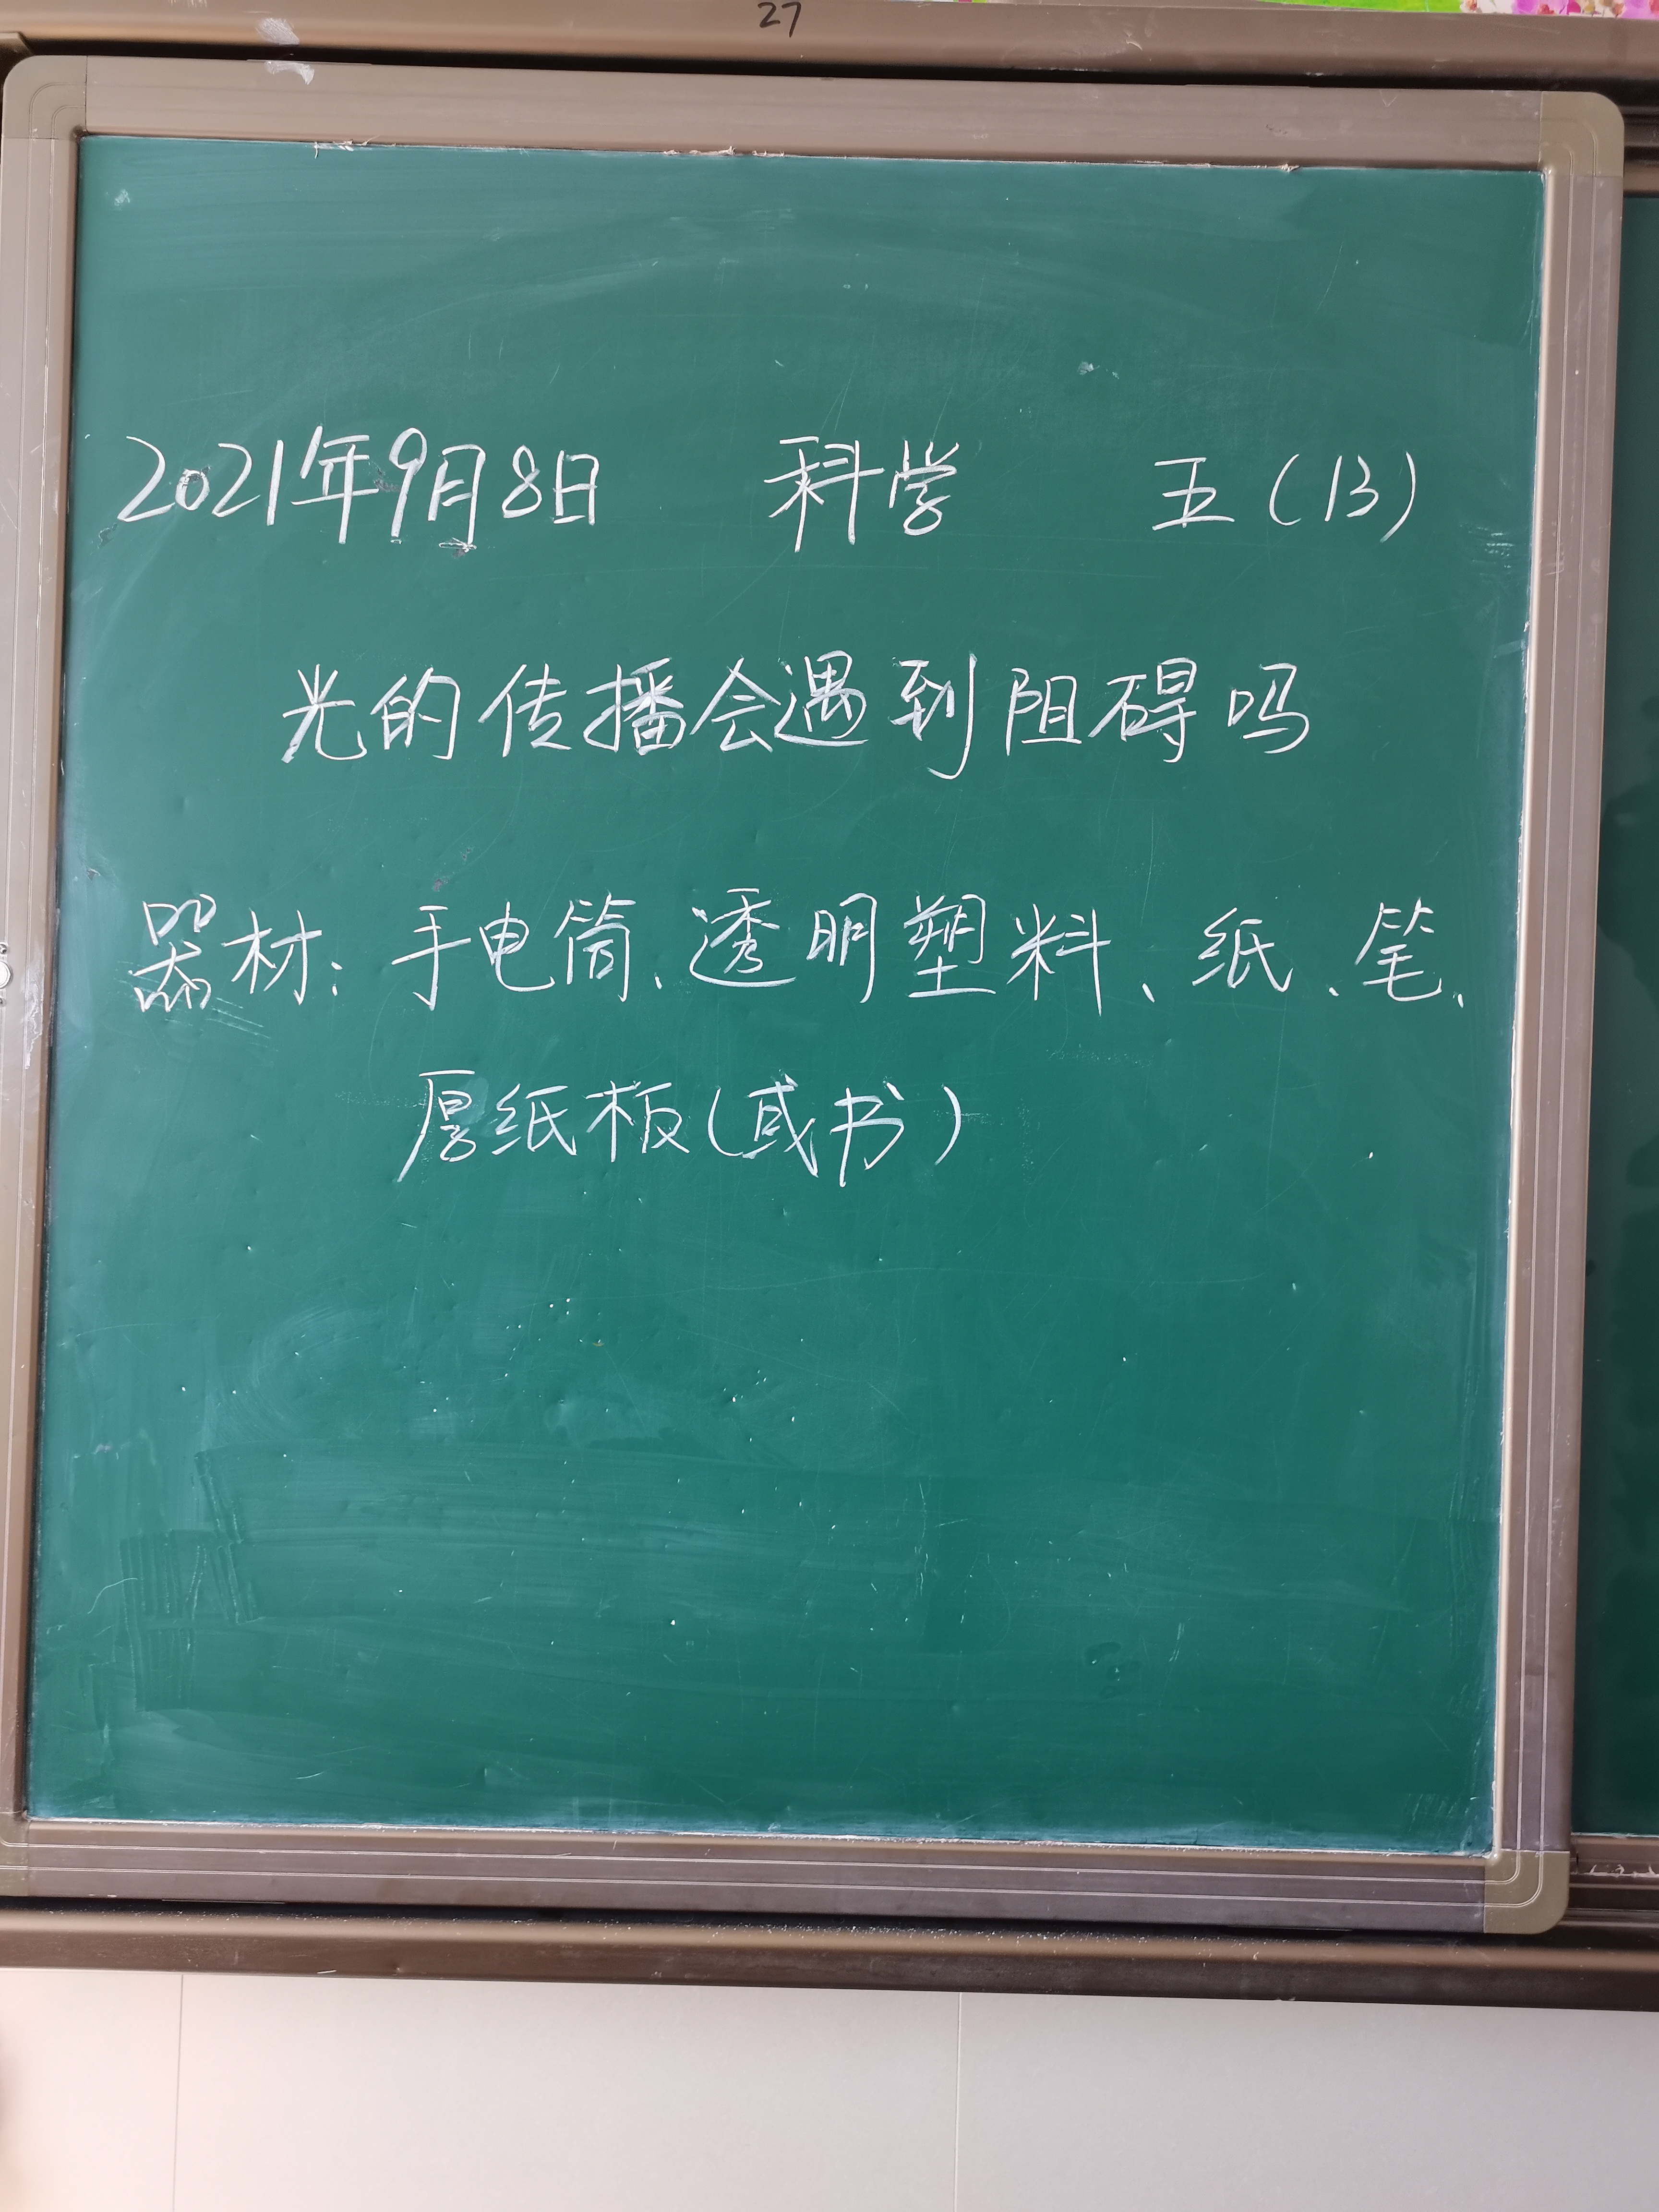 27
2021年9月8日 科学 五(13)
光的传播会遇到阻碍吗
器材:手电筒、透明塑料、纸、笔、
厚纸板(或书)